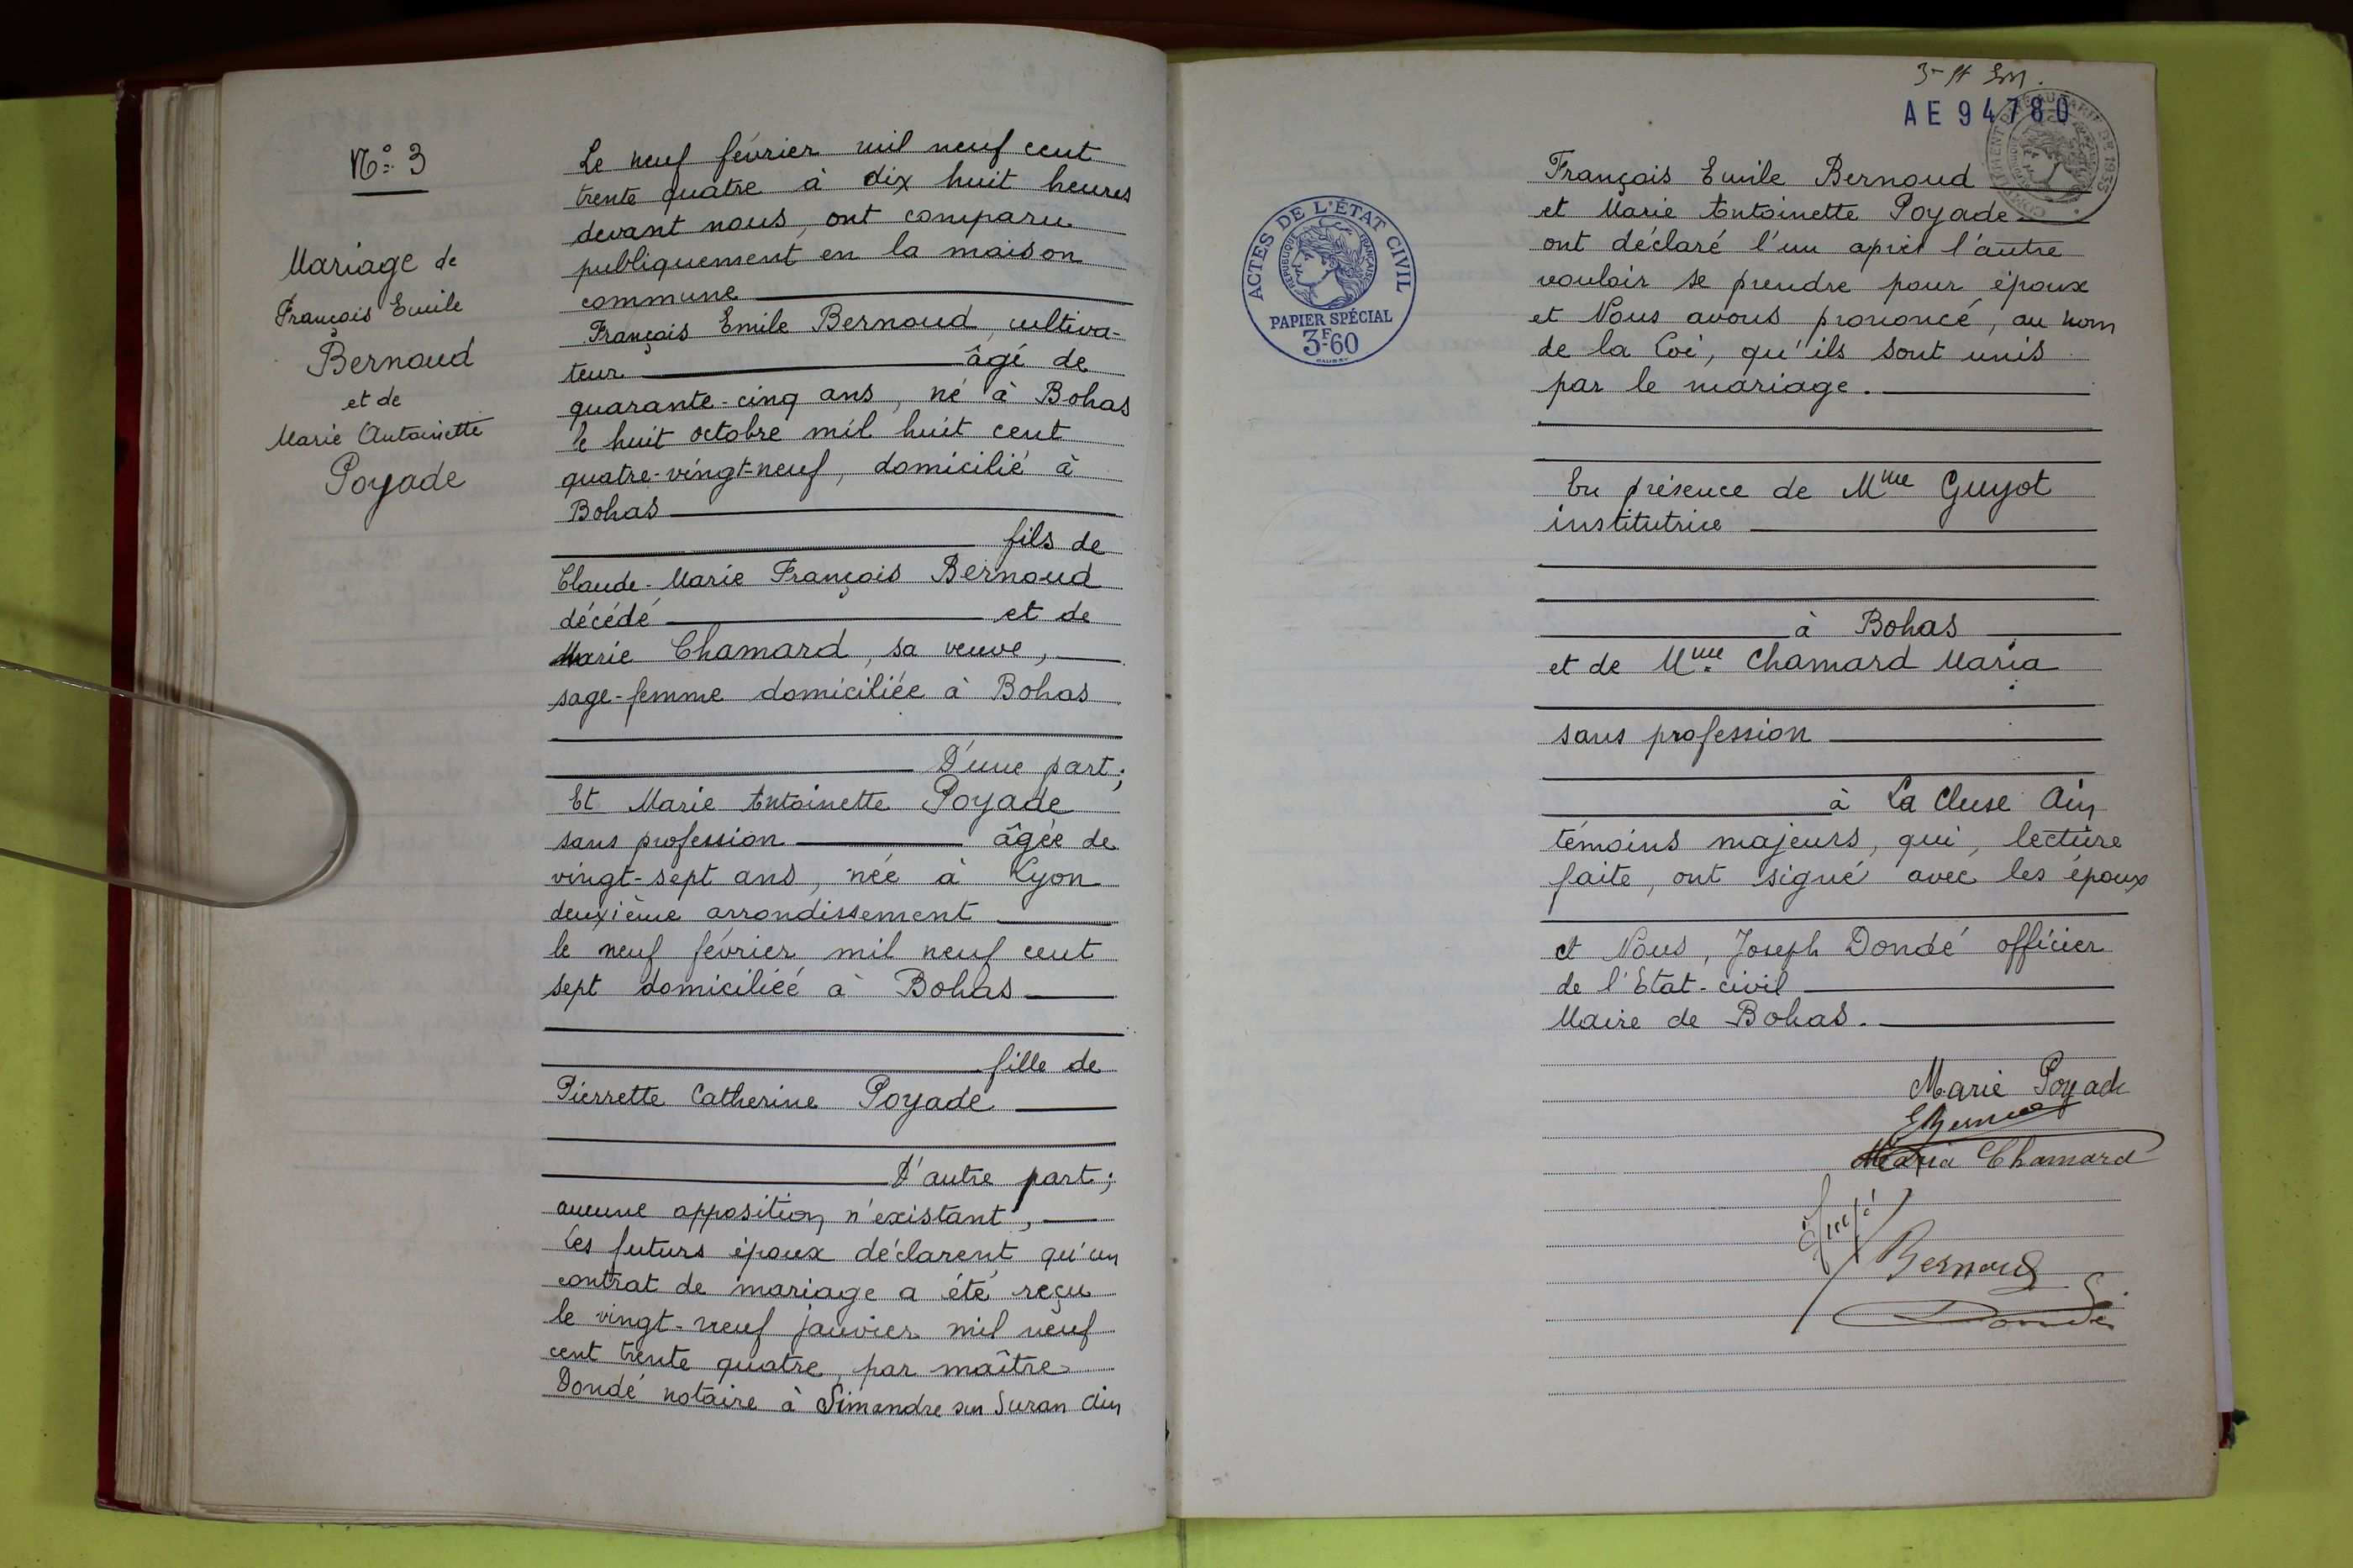 N° 3
Mariage de
François Emile
Bernoud
et de
Marie Antoinette
Poyade
Le neuf février mil neuf cent
trente quatre à dix huit heures
devant nous, ont comparu
publiquement en la maison
commune
François Emile Bernoud, cultiva-
teur âgé de
quarante-cinq ans, né à Bohas
le huit octobre mil huit cent
quatre-vingt-neuf, domicilié à
Bohas
fils de
Claude-Marie François Bernoud
décédé et de
Marie Chamard, sa veuve,
sage-femme domiciliée à Bohas
D'une part;
Et Marie Antoinette Poyade
sans profession âgée de
vingt-sept ans, née à Lyon
deuxième arrondissement
le neuf février mil neuf cent
sept domiciliée à Bohas
fille de
Pierrette Catherine Poyade
D'autre part;
aucune opposition n'existant,
Les futurs époux déclarent qu'un
contrat de mariage a été reçu
le vingt-neuf janvier mil neuf
cent trente quatre, par maître
Dondé notaire à Simandre sur Suran Ain
AE 94780
ACTES DE L'ÉTAT CIVIL
RÉPUBLIQUE FRANÇAISE
PAPIER SPÉCIAL
3F-60
François Emile Bernoud
et Marie Antoinette Poyade
ont déclaré l'un après l'autre
vouloir se prendre pour époux
et Nous avons prononcé, au nom
de la Loi, qu'ils sont unis
par le mariage.
En présence de Mme Guyot
institutrice
à Bohas
et de Mme Chamard Maria
sans profession
à La Cluse Ain
témoins majeurs, qui, lecture
faite, ont signé avec les époux
et Nous, Joseph Dondé officier
de l'Etat-civil
Maire de Bohas.
Marie Poyade
Maria Chamard
Bernoud
Dondé